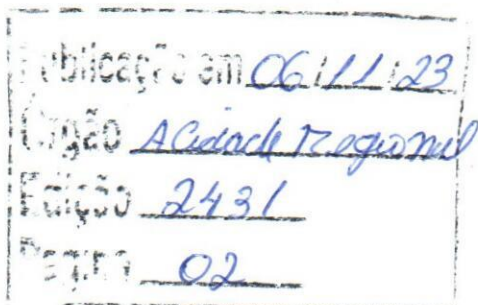 Publicação em 06/11/23
Órgão A Cidade Regional
Edição 2431
Pagina 02